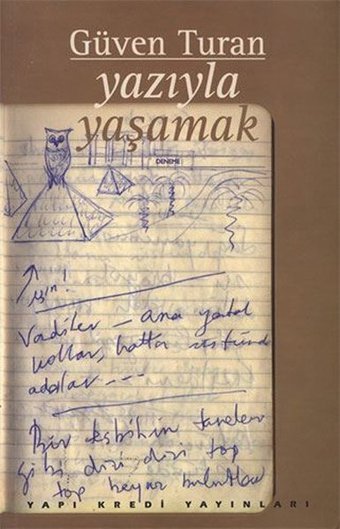 Güven Turan
yazıyla
yaşamak
DENEME
Vadiler — ana yatak
kollar, hatta üstünde
adalar ---
Bir tesbihin taneleri
gibi dizi dizi top
top beyaz bulutlar
YAPI KREDİ YAYINLARI